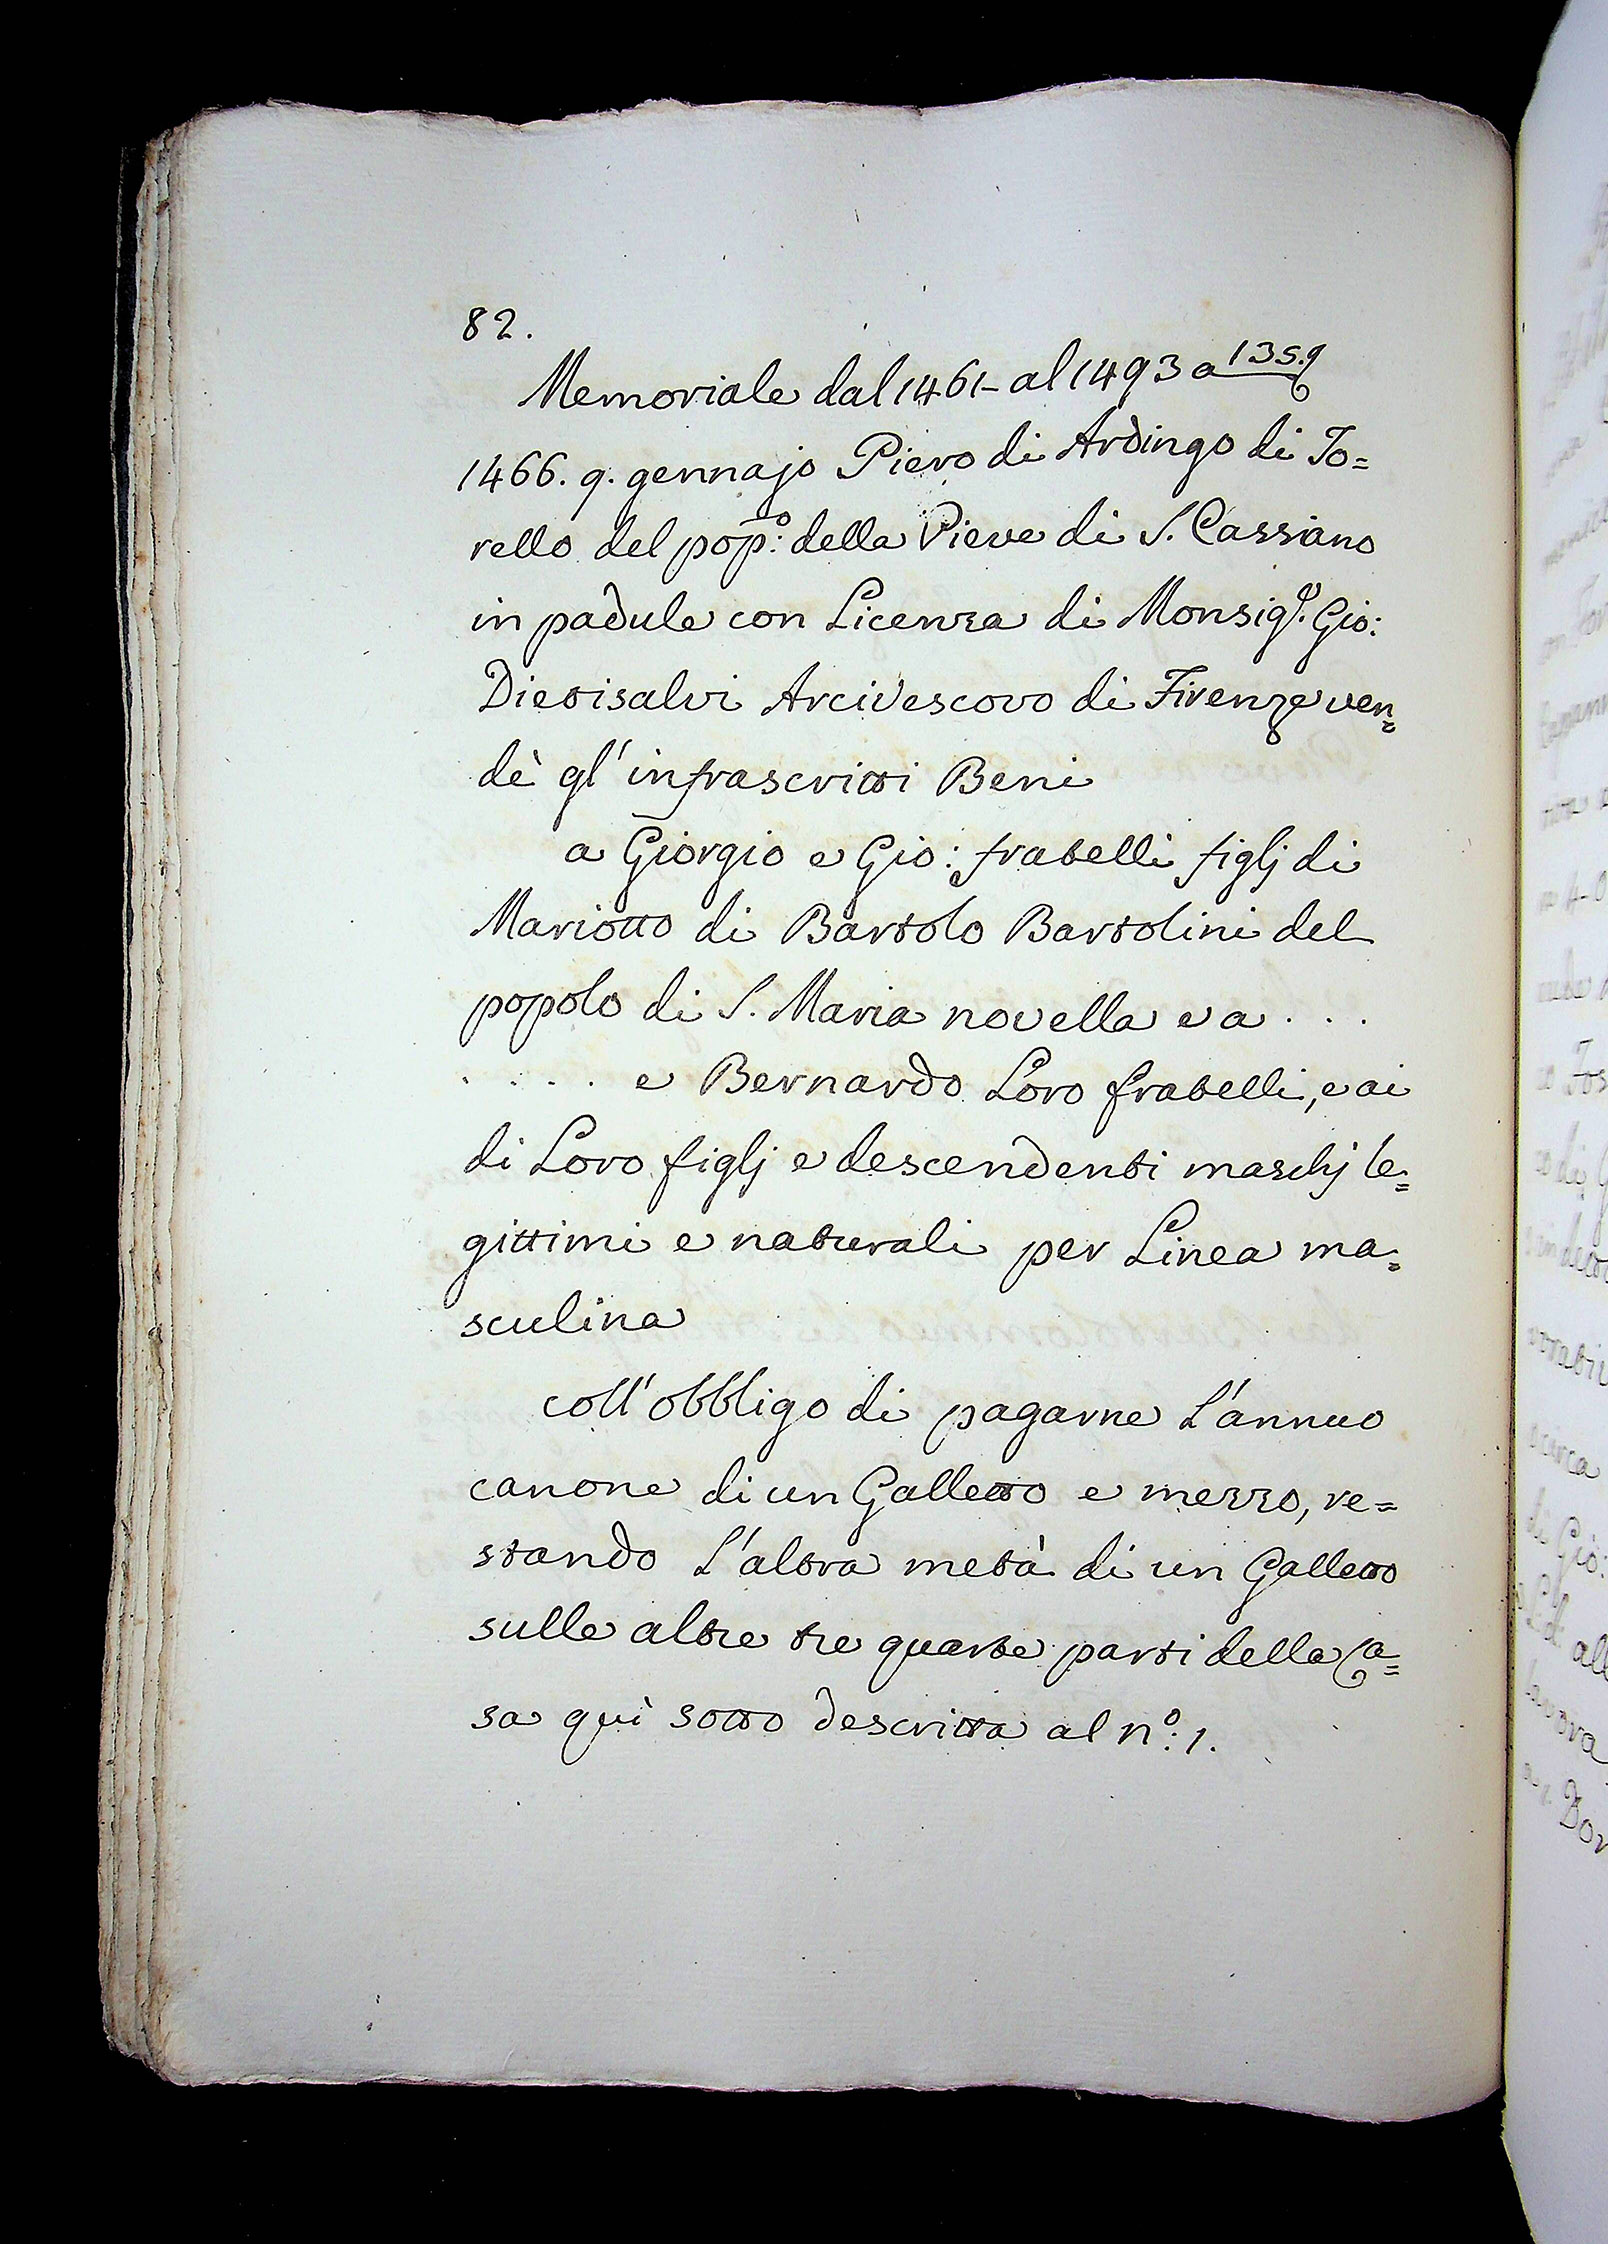 82.
Memoriale dal 1461– al 1493 a 135.9
1466. 9. gennajo Piero di Ardingo di To=
rello del pop:º della Pieve di S. Cassiano
in padule con Licenza di Monsig.r Gio:
Dietisalvi Arcivescovo di Firenze ven=
dè gl'infrascritti Beni
a Giorgio e Gio: fratelli figlj di
Mariotto di Bartolo Bartolini del
popolo di S. Maria novella e a . . .
. . . . . e Bernardo Loro fratelli, e ai
di Loro figlj e descendenti maschj le=
gittimi e naturali per Linea ma=
sculina
coll'obbligo di pagarne L'annuo
canone di un Galletto e mezzo, re=
stando L'altra metà di un Galletto
sulle altre tre quarte parti della Ca=
sa quì sotto descritta al n.º: 1.